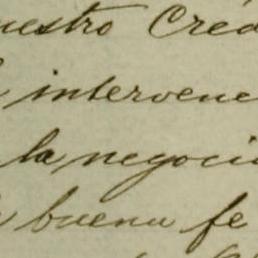 uestro Créd
intervene
la negoci
buena fe